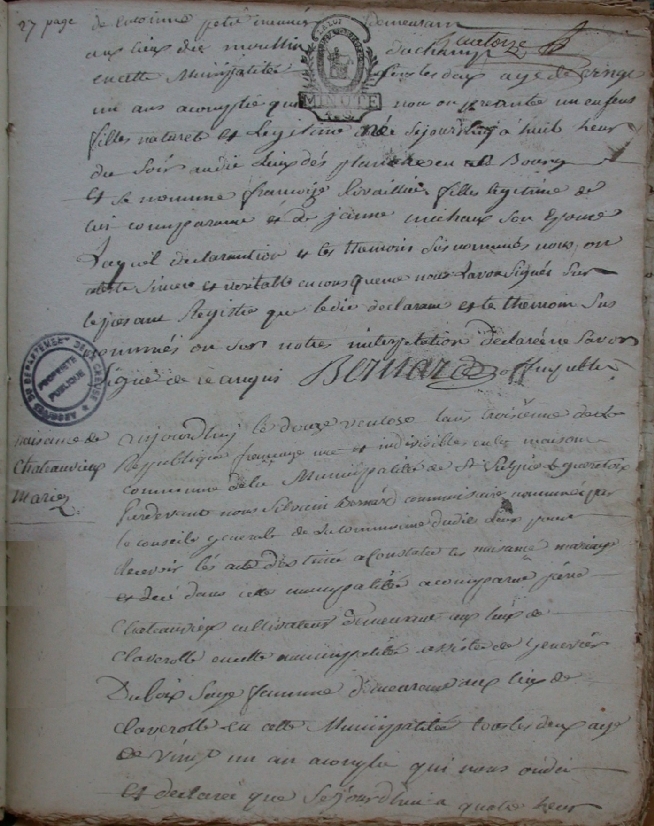 27 page
quatorze
LA LOI
MINUTE
de demeurant
aux lieu des moullin
en cette Municipalité tous les deux age de vingt
un ans acomplie qui nous on presante un enfans
filles naturel et Légitime née sejourdhuy à huit heur
du Soir audit Lieux des en ce Bourg
et se nomme françoize filles légitime de
lui comparant et de jeanne michaux son Epouse
Laquel declarantion et les themoin sus nommés nous on
ateste sincere et veritable en consequence nous Lavon Signés Sur
le presant Registre que ledit declarant et le themoin Sus
nommés on sur notres interpelation declarée ne Savoir
signé de ce anquis Bernard off publier
ARCHIVES DU DEPARTEMENT DE LA CREUSE
PROPRIETE PUBLIQUE
naisance de
Chateauvieux
Marie
aujourdhuy le douze ventose lans troisième de la
Republique francoize une et indivisible en la maison
commune de la Municipalité de St Sulpice Le gueretois
pardevant nous Silvain Bernard commissaire nommée par
le conseils general de la commune dudit Lieux pour
recevoir les acte destiné a constater les naisance mariage
et deci dans cette municipalité a comparue
Chateauvieux cultivateur demeurant aux lieu de
Claverolle en cette municipalité assisté de
Dubois Sage famme demeurant aux lieu de
Claverolle en cette Municipalitée tous les deux age
de vingt un an acomplie qui nous
et declaré que Sejourdhui a quatre heur